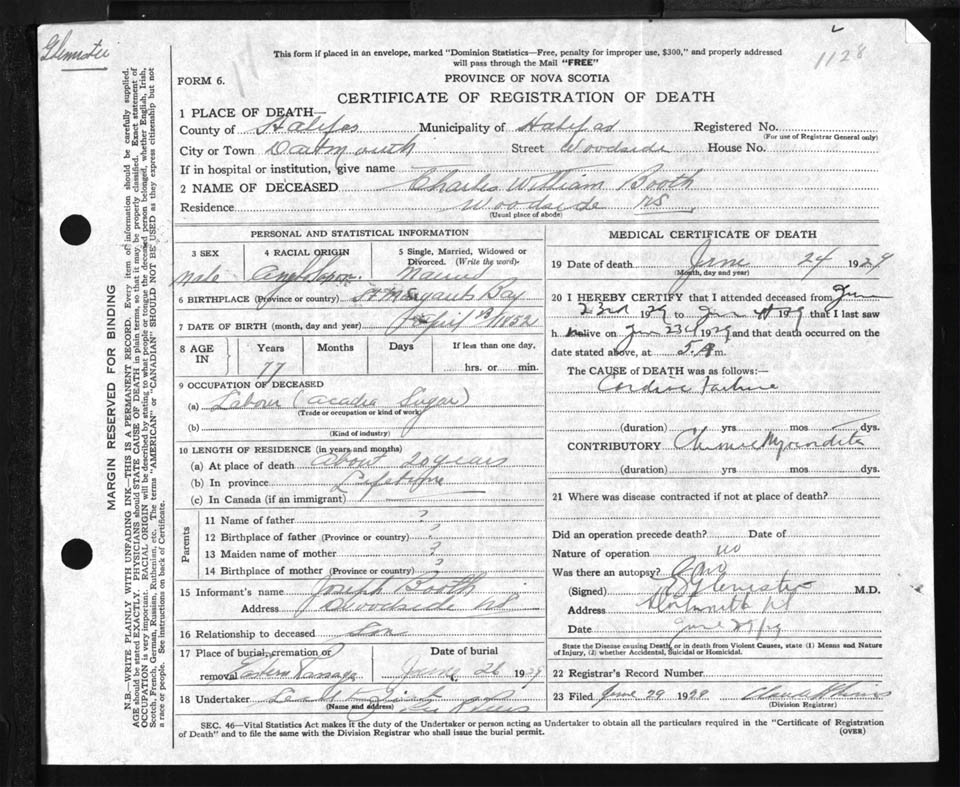 Glenister
1128
This form if placed in an envelope, marked "Dominion Statistics—Free, penalty for improper use, $300," and properly addressed
will pass through the Mail "FREE"
FORM 6.
PROVINCE OF NOVA SCOTIA
CERTIFICATE OF REGISTRATION OF DEATH
1 PLACE OF DEATH—
County of Halifax Municipality of Halifax Registered No.
(For use of Registrar General only)
City or Town Dartmouth Street Woodside House No.
If in hospital or institution, give name
2 NAME OF DECEASED Charles William Booth
Residence Woodside NS
(Usual place of abode)
MARGIN RESERVED FOR BINDING
N.B.—WRITE PLAINLY WITH UNFADING INK—THIS IS A PERMANENT RECORD. Every item of information should be carefully supplied.
AGE should be stated EXACTLY. PHYSICIANS should STATE CAUSE OF DEATH in plain terms, so that it may be properly classified. Exact statement of
OCCUPATION is very important. RACIAL ORIGIN will be described by stating to what people or tongue the deceased person belonged, whether English, Irish,
Scotch, French, German, Russian, Ruthenian, etc. The terms "AMERICAN" or "CANADIAN" SHOULD NOT BE USED as they express citizenship but not
a race or people. See instructions on back of Certificate.
PERSONAL AND STATISTICAL INFORMATION
3 SEX 4 RACIAL ORIGIN 5 Single, Married, Widowed or
Divorced. (Write the word).
Male Anglo Saxon Married
6 BIRTHPLACE (Province or country) St Margarets Bay
7 DATE OF BIRTH (month, day and year) April 13 1852
8 AGE IN Years Months Days If less than one day,
77 hrs. or min.
9 OCCUPATION OF DECEASED
(a) Labour (Acadia Sugar)
(Trade or occupation or kind of work)
(b)
(Kind of industry)
10 LENGTH OF RESIDENCE (in years and months)
(a) At place of death about 20 years
(b) In province Lifetime
(c) In Canada (if an immigrant)
Parents
11 Name of father ?
12 Birthplace of father (Province or country) ?
13 Maiden name of mother ?
14 Birthplace of mother (Province or country) ?
15 Informant's name Joseph Booth
Address Woodside NS
16 Relationship to deceased Son
17 Place of burial, cremation or Date of burial
removal Eastern Passage June 26 1929
18 Undertaker
(Name and address)
MEDICAL CERTIFICATE OF DEATH
19 Date of death June 24 1929
(Month, day and year)
20 I HEREBY CERTIFY that I attended deceased from June
23rd 1929 to June 1929 that I last saw
h alive on June 23d 1929 and that death occurred on the
date stated above, at 5 A m.
The CAUSE of DEATH was as follows:—
Cardiac Failure
(duration) yrs mos dys.
CONTRIBUTORY Chronic Myocarditis
(duration) yrs mos dys.
21 Where was disease contracted if not at place of death?
Did an operation precede death? Date of
Nature of operation no
Was there an autopsy? no
(Signed) Glenister M.D.
Address Dartmouth
Date June 29/29
State the Disease causing Death, or in death from Violent Causes, state (1) Means and Nature
of Injury, (2) whether Accidental, Suicidal or Homicidal.
22 Registrar's Record Number
23 Filed June 29 1929
(Division Registrar)
SEC. 46—Vital Statistics Act makes it the duty of the Undertaker or person acting as Undertaker to obtain all the particulars required in the "Certificate of Registration
of Death" and to file the same with the Division Registrar who shall issue the burial permit. (OVER)